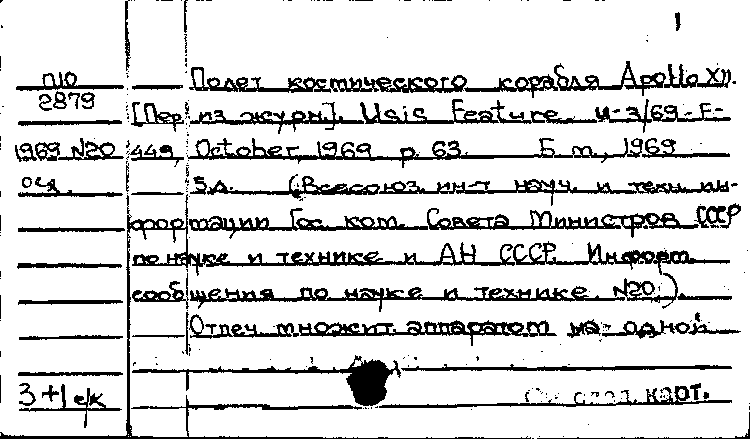 1
П10
2879
1969 N20
осн.
Полет космического корабля Apollo XII.
[Пер. из журн.]. Usis Feature. И-3/69-F-
449, October, 1969 p. 63. Б. м., 1969
5л. (Всесоюз. ин-т науч. и техн. ин-
формации Гос. ком. Совета Министров СССР
по науке и технике и АН СССР. Информ.
сообщения по науке и технике. N20.).
Отпеч. множит. аппаратом на одной
3+1 е/к
карт.